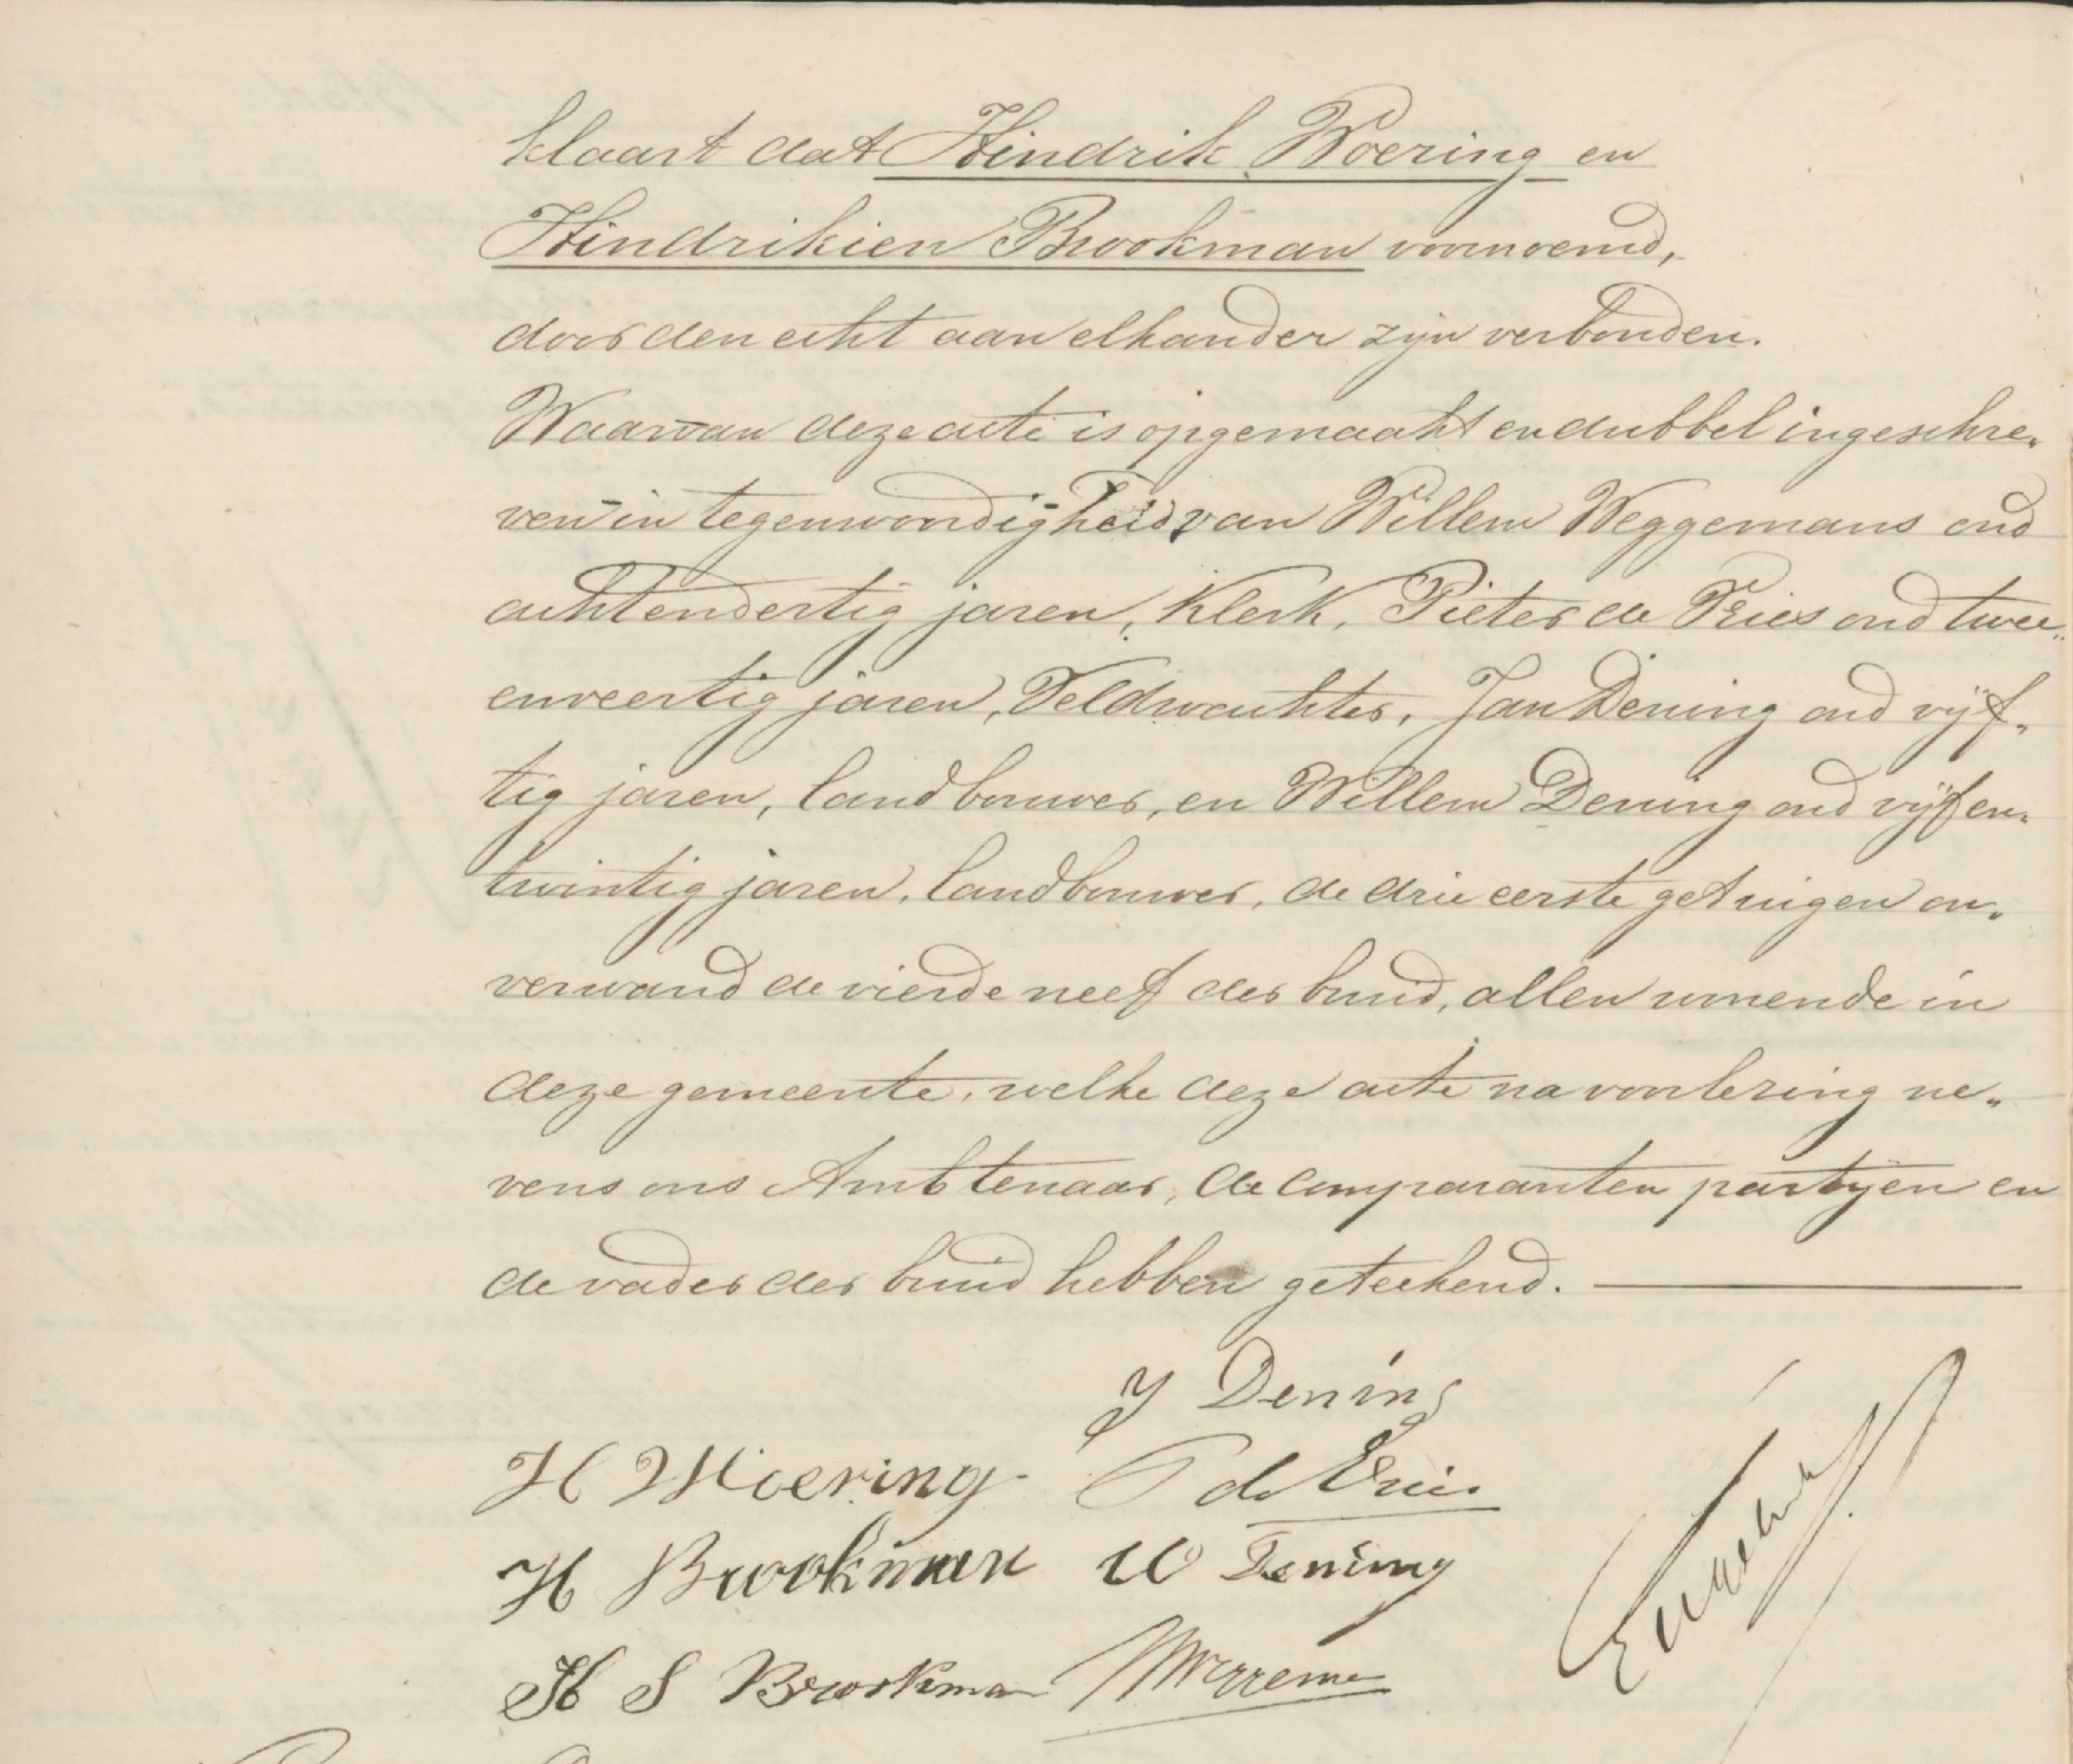 klaart dat Hindrik Woering en
Hindrikien Brookman voornoemd,
door den echt aan elkander zijn verbonden.
Waarvan deze acte is opgemaakt en dubbel ingeschre„
ven in tegenwoordigheid van Willem Weggemans oud
achtendertig jaren, Klerk, Pieter de Vries oud twee„
enveertig jaren, Veldwachter, Jan Dening oud vijf„
tig jaren, landbouwer, en Willem Dening oud vijfen„
twintig jaren, landbouwer, de drie eerste getuigen on„
verwand de vierde neef der bruid, allen wonende in
deze gemeente, welke deze acte na voorlezing ne„
vens ons Ambtenaar, de comparanten partijen en
de vader der bruid hebben geteekend.
J Dening
H Woering P de Vries
H Brookman W Dening
H S Brookman